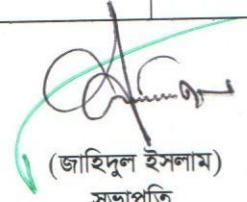 (জাহিদুল ইসলাম)
সভাপতি